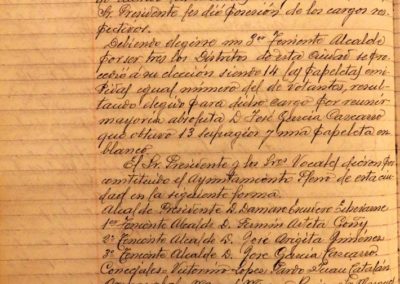 Sr. Presidente les dió posesión de los cargos res-
pectivos.
Debiendo elegirse un 3er Teniente Alcalde
por ser tres los Distritos de esta ciudad se pro-
cedió a su elección siendo 14 las papeletas emi-
tidas igual número del de votantes, resul-
tando elegido para dicho cargo por reunir
mayoría absoluta D. José Garcia Cascarro
que obtuvo 13 sufragios y una papeleta en
blanco.
El Sr. Presidente y los Sres. Vocales dieron por
constituido el Ayuntamiento Pleno de esta ciu-
dad en la siguiente forma.
Alcalde Presidente D. Damaso
1er Teniente Alcalde D. Fermin
2º Teniente Alcalde D. Jose Gimenez
3º Teniente Alcalde D. Jose Garcia Cascarro
Concejales Victorino Lopez Pardo Juan Catalán